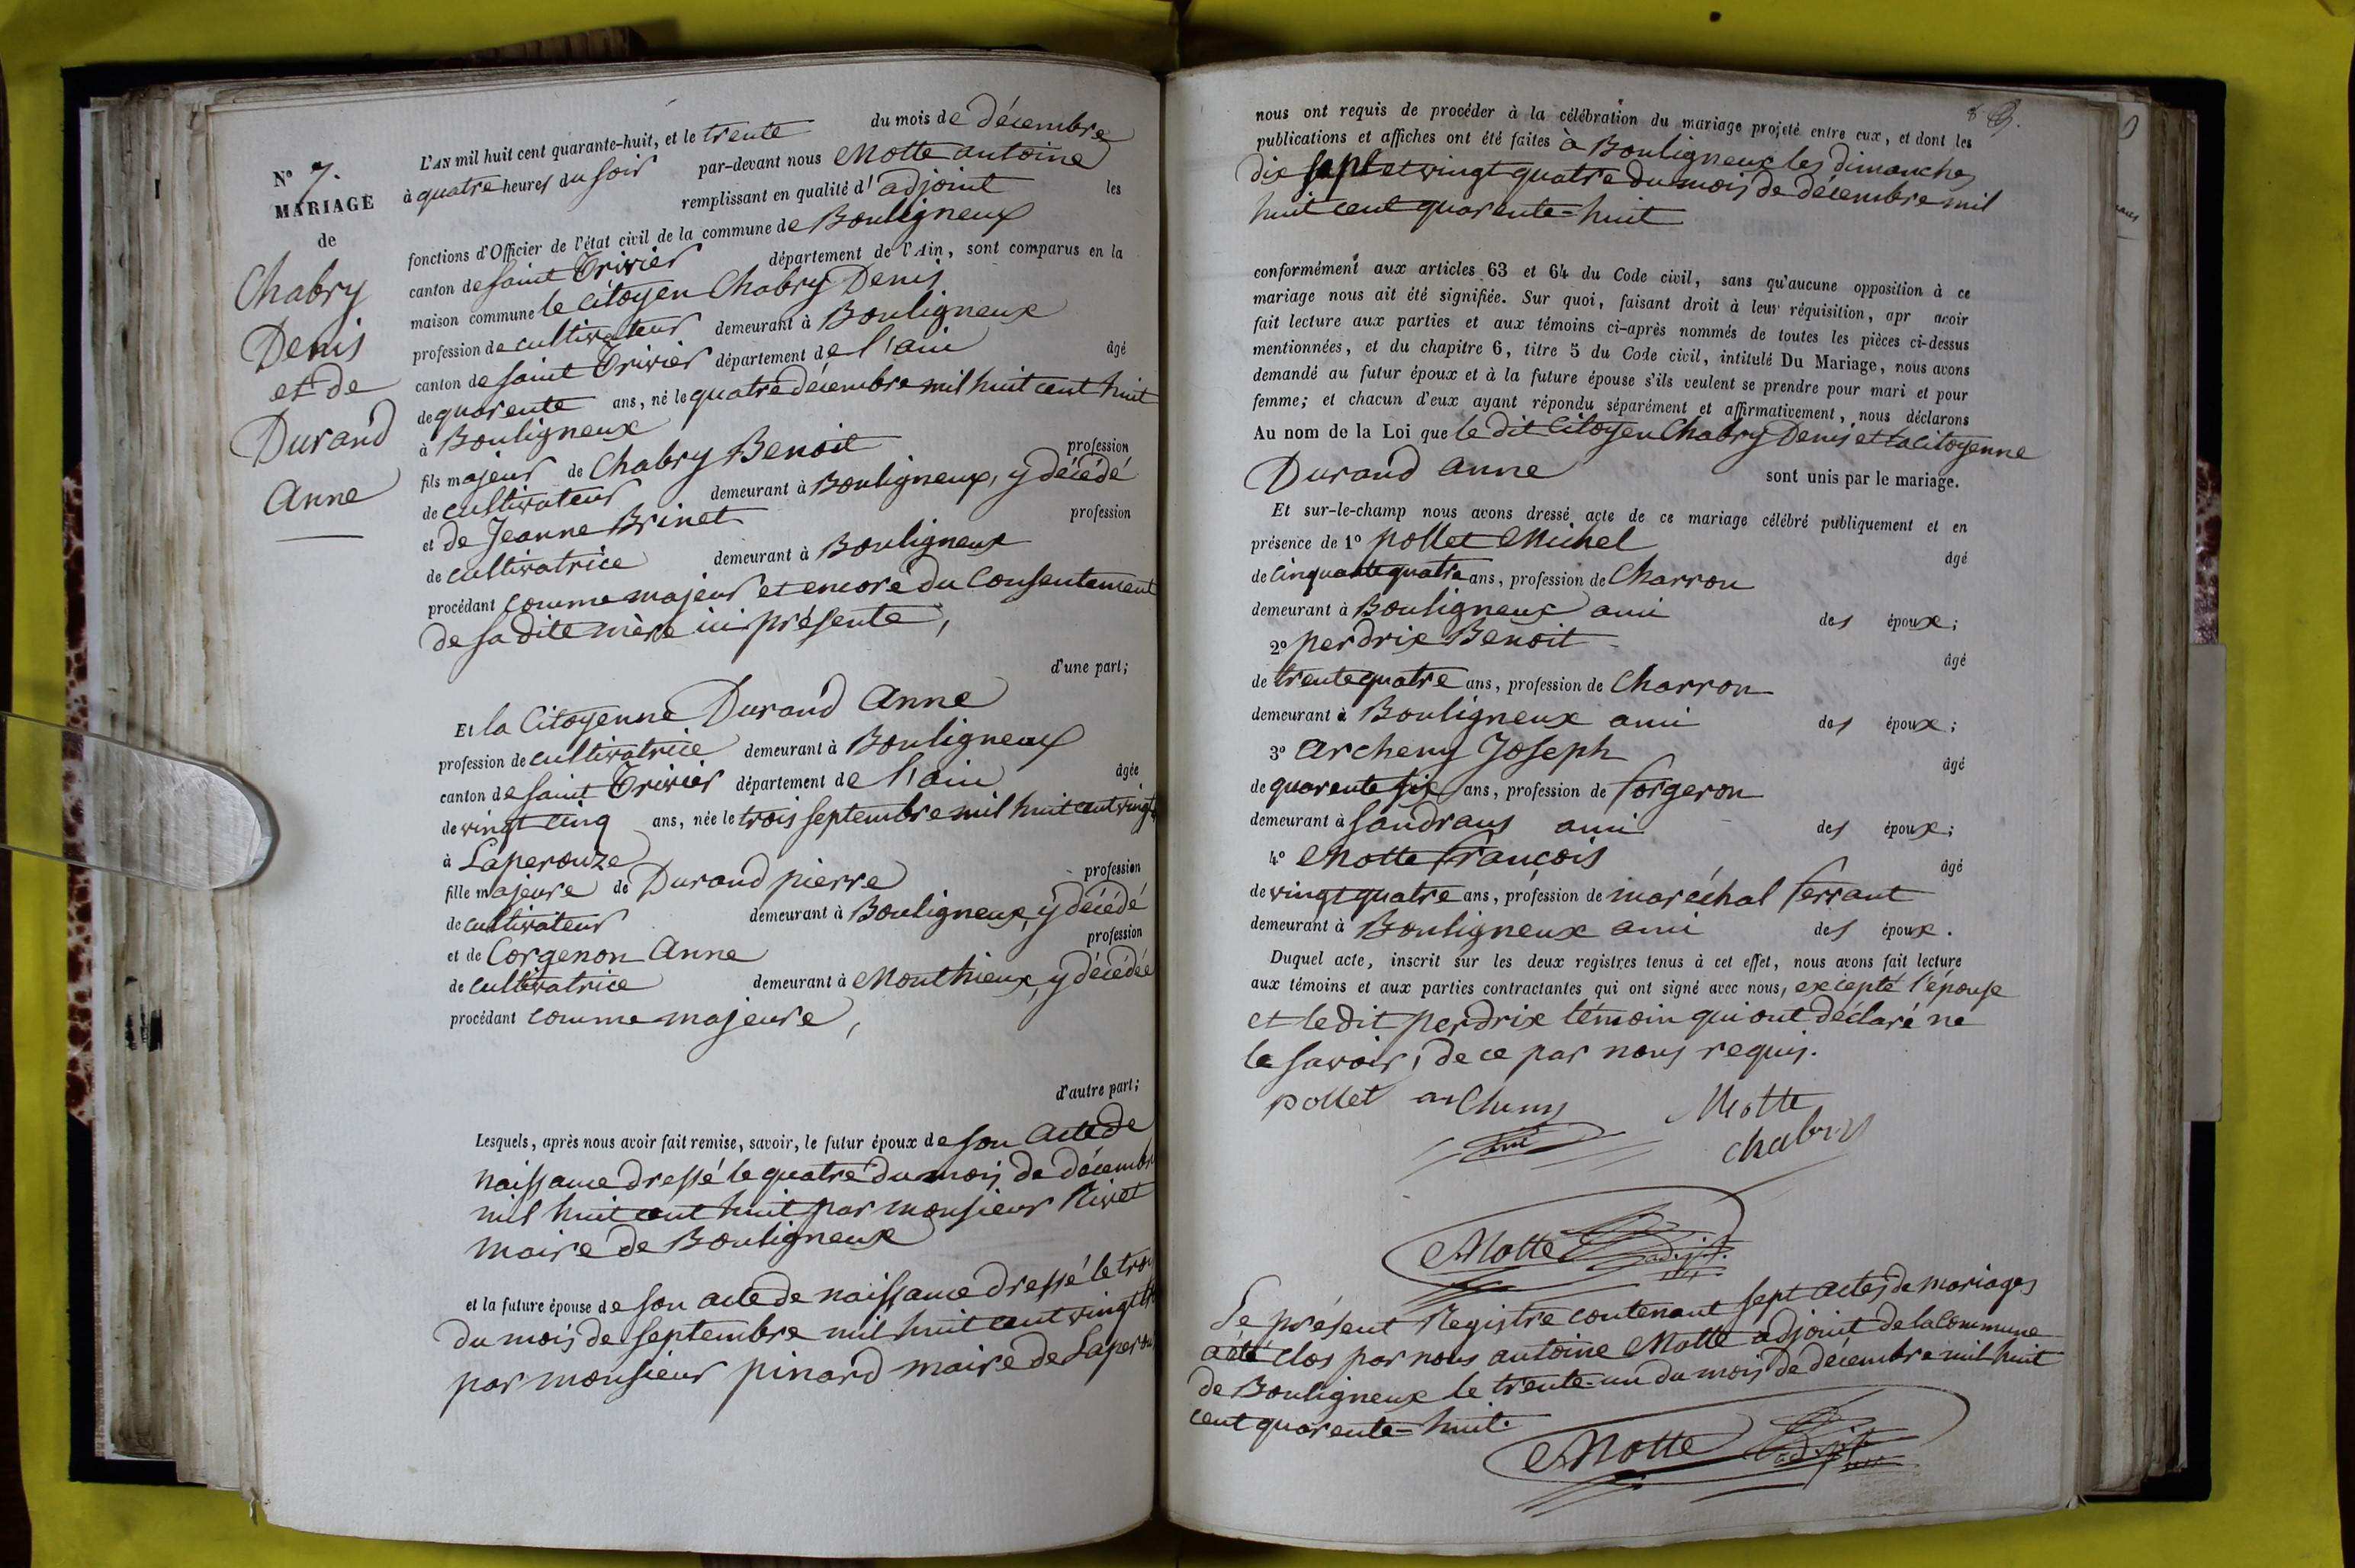 N° 7.
MARIAGE
de
Chabry
Denis
et de
Durand
Anne
L'AN mil huit cent quarante-huit, et le trente du mois de décembre
à quatre heures du soir par-devant nous Motte antoine
remplissant en qualité d'adjoint les
fonctions d'Officier de l'état civil de la commune de Bouligneux
canton de saint Trivier département de l'Ain, sont comparus en la
maison commune le Citoyen Chabry Denis
profession de cultivateur demeurant à Bouligneux
canton de saint Trivier département de l'ain âgé
de quarente ans, né le quatre décembre mil huit cent huit
à Bouligneux
fils majeur de Chabry Benoit profession
de cultivateur demeurant à Bouligneux, y décédé
et de Jeanne Brinet profession
de cultivatrice demeurant à Bouligneux
procédant comme majeur et encore du consentement
de sa dite mère ici présente,
d'une part;
Et la Citoyenne Durand Anne
profession de cultivatrice demeurant à Bouligneux
canton de saint Trivier département de l'ain âgée
de vingt cinq ans, née le trois septembre mil huit cent vingt
à Laperouze
fille majeure de Durand pierre profession
de cultivateur demeurant à Bouligneux, y décédé
et de Corgenon Anne profession
de cultivatrice demeurant à Monthieux, y décédée
procédant comme majeure,
d'autre part;
Lesquels, après nous avoir fait remise, savoir, le futur époux de son acte de
naissance dressé le quatre du mois de décembre
mil huit cent huit par monsieur Rivet
maire de Bouligneux
et la future épouse de son acte de naissance dressé le trois
du mois de septembre mil huit cent vingt
par monsieur pinard maire de Laperou
nous ont requis de procéder à la célébration du mariage projeté entre eux, et dont les
publications et affiches ont été faites à Bouligneux les dimanches
dix sept et vingt quatre du mois de décembre mil
huit cent quarente-huit
conformément aux articles 63 et 64 du Code civil, sans qu'aucune opposition à ce
mariage nous ait été signifiée. Sur quoi, faisant droit à leur réquisition, apr avoir
fait lecture aux parties et aux témoins ci-après nommés de toutes les pièces ci-dessus
mentionnées, et du chapitre 6, titre 5 du Code civil, intitulé Du Mariage, nous avons
demandé au futur époux et à la future épouse s'ils veulent se prendre pour mari et pour
femme; et chacun d'eux ayant répondu séparément et affirmativement, nous déclarons
Au nom de la Loi que le dit Citoyen Chabry Denis et la citoyenne
Durand Anne sont unis par le mariage.
Et sur-le-champ nous avons dressé acte de ce mariage célébré publiquement et en
présence de 1° pollet Michel âgé
de cinquante quatre ans, profession de Charron
demeurant à Bouligneux ami des époux;
2° perdrix Benoit âgé
de trente quatre ans, profession de Charron
demeurant à Bouligneux ami des époux;
3° Archeny Joseph âgé
de quarente six ans, profession de forgeron
demeurant à Sandrans ami des époux;
4° Motte françois âgé
de vingt quatre ans, profession de maréchal ferrant
demeurant à Bouligneux ami des époux.
Duquel acte, inscrit sur les deux registres tenus à cet effet, nous avons fait lecture
aux témoins et aux parties contractantes qui ont signé avec nous, excepté l'épouse
et le dit perdrix témoin qui ont déclaré ne
le savoir, de ce par nous requis.
pollet archeny Motte
chabry
Motte adjt.
Le présent Registre contenant sept actes de mariages
a été clos par nous antoine Motte adjoint de la commune
de Bouligneux le trente-un du mois de décembre mil huit
cent quarente-huit.
Motte adjt